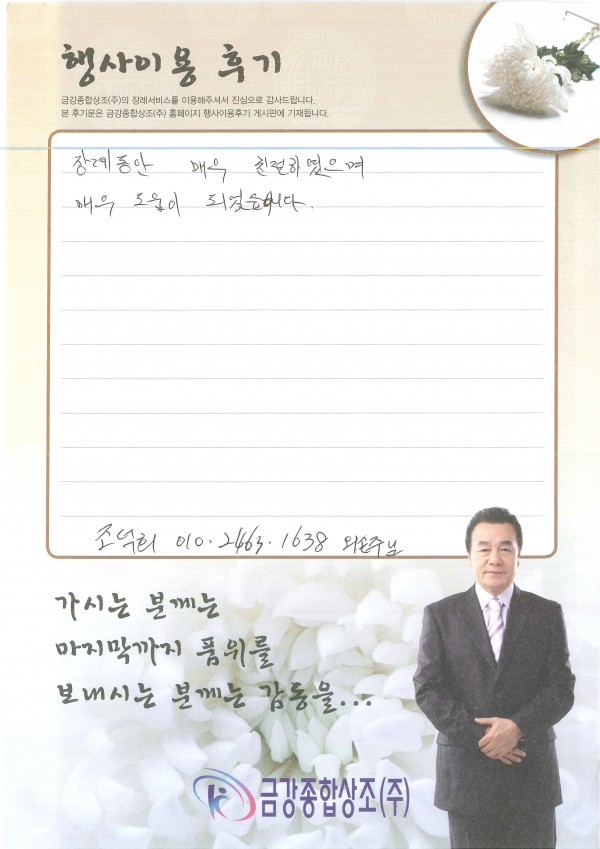 행사이용 후기
금강종합상조(주)의 장례서비스를 이용해주셔서 진심으로 감사드립니다.
본 후기문은 금강종합상조(주) 홈페이지 행사이용후기 게시판에 기재됩니다.
장례동안 매우 친절하였으며
매우 도움이 되었습니다.
조덕희 010.2463.1638 외손주님
가시는 분께는
마지막까지 품위를
보내시는 분께는 감동을...
금강종합상조(주)